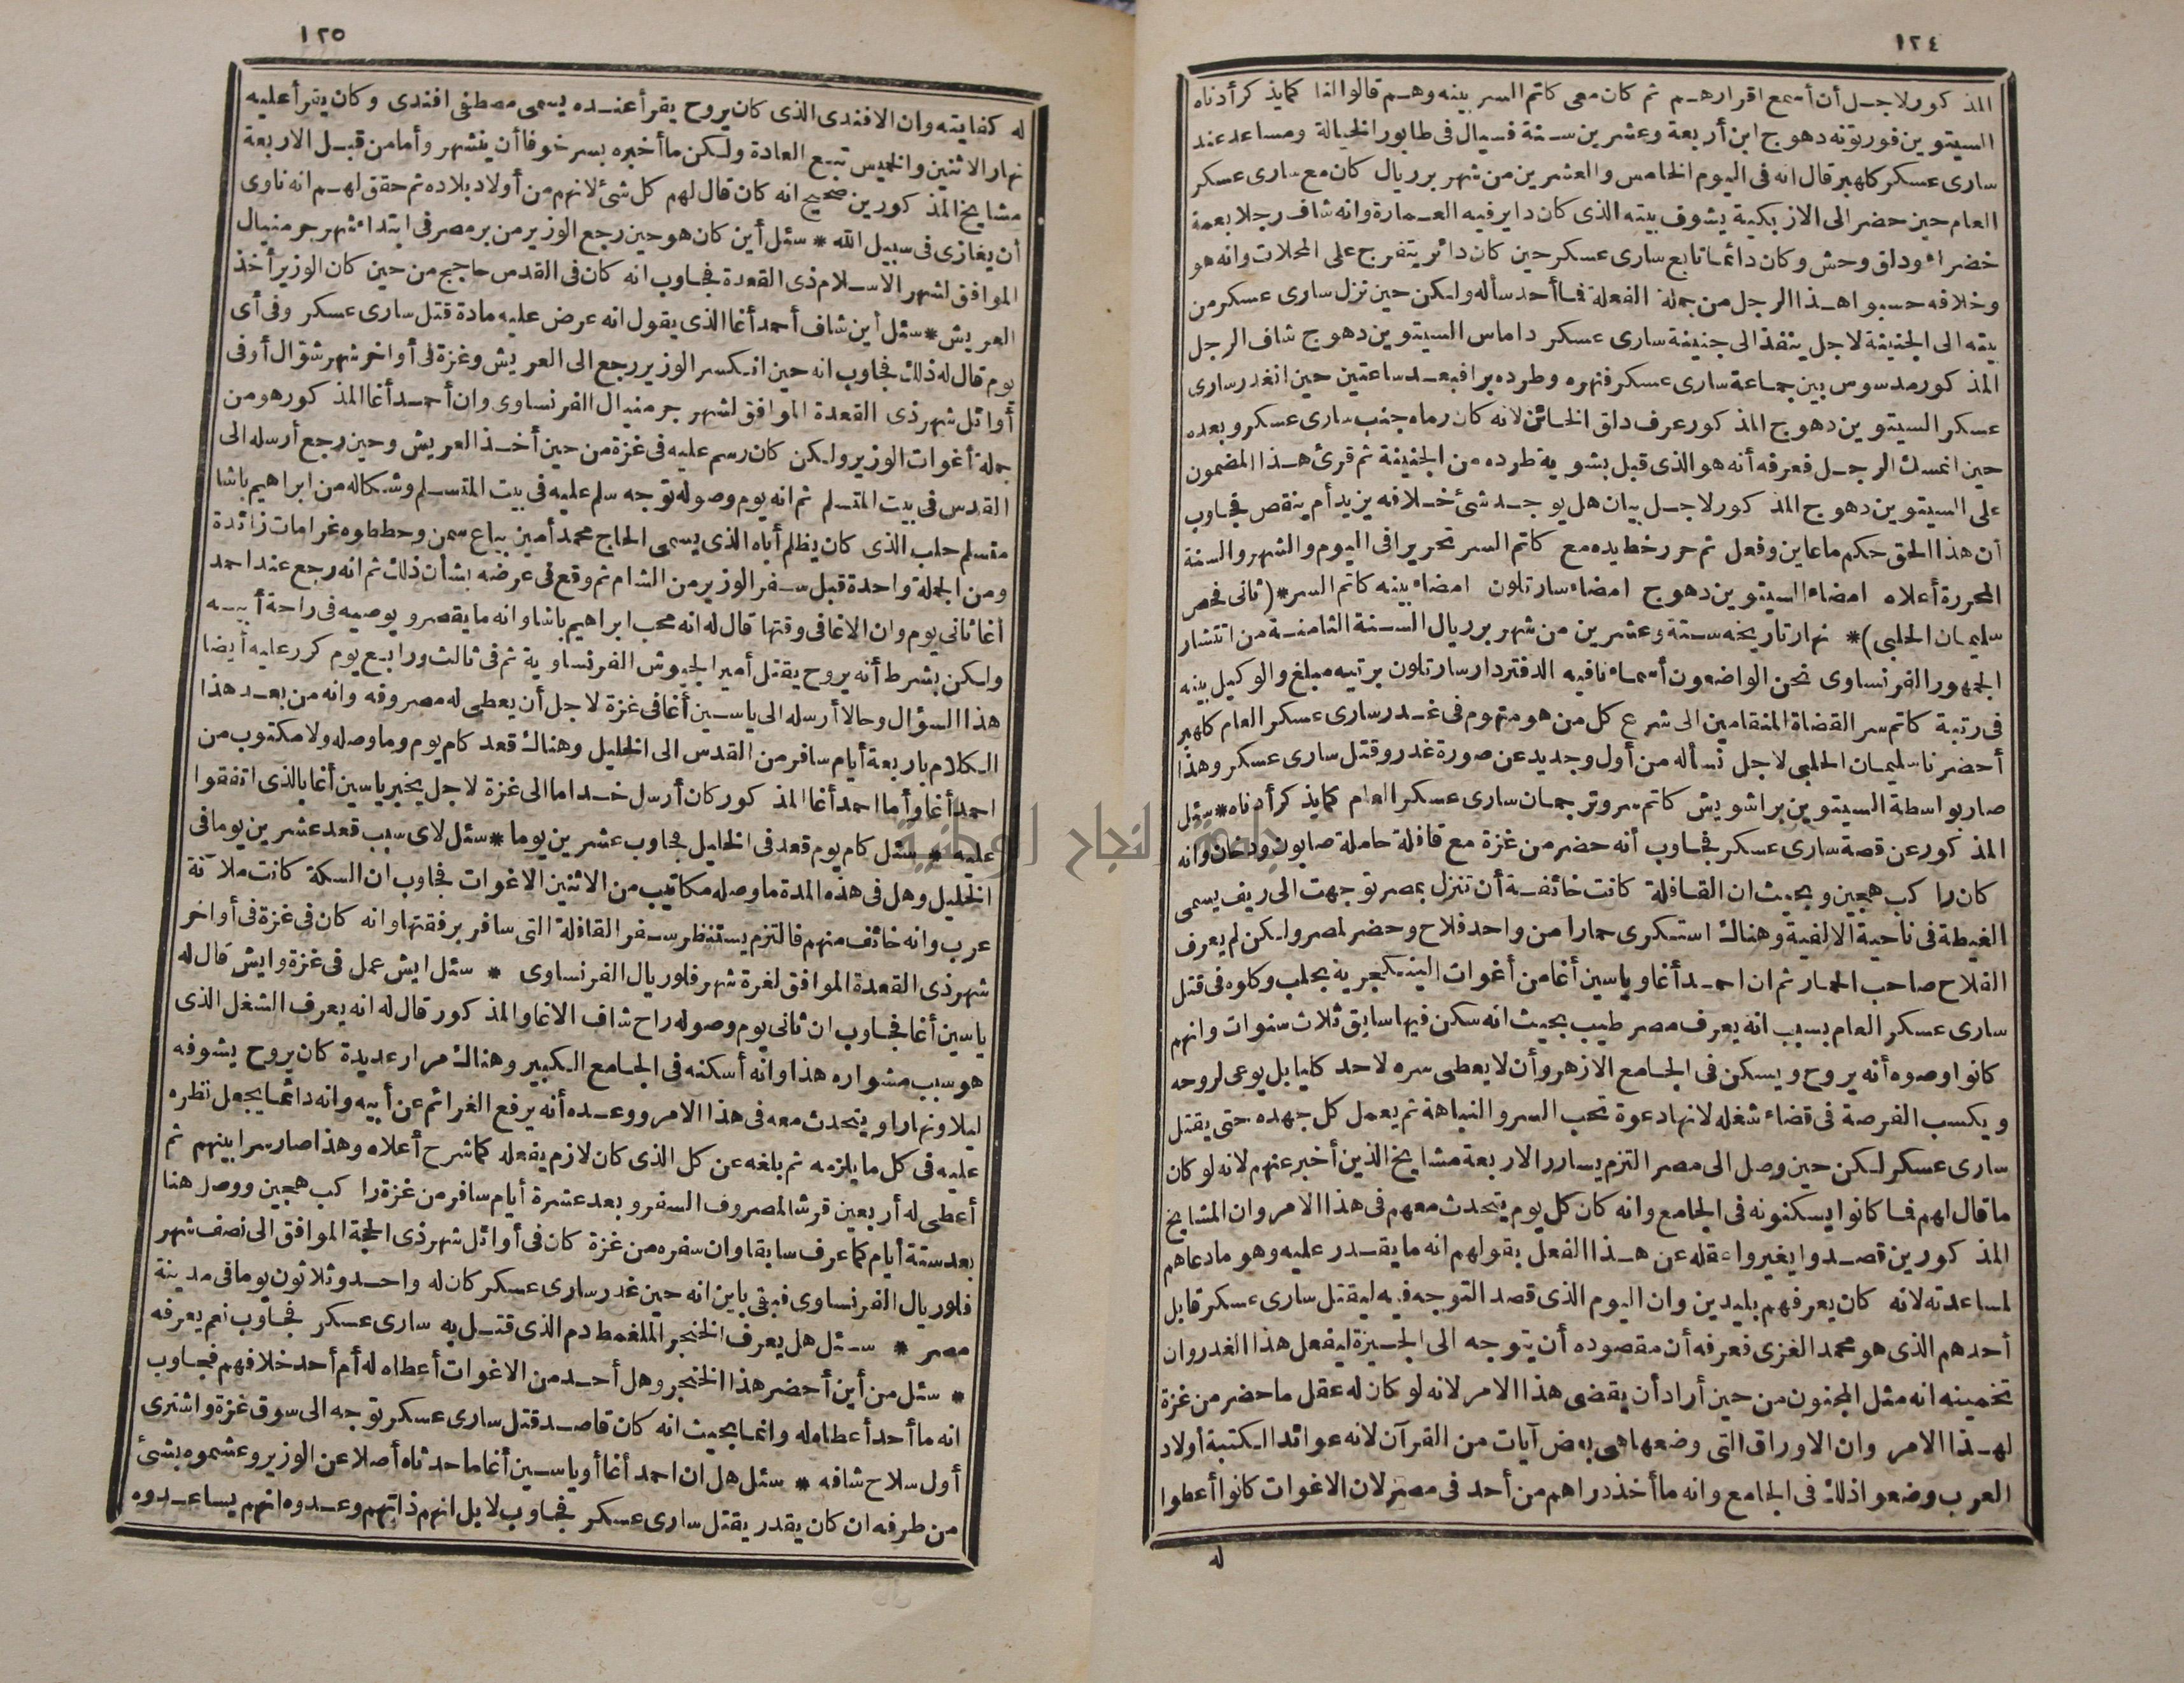 ١٢٤
المذكور لاجل أن أسمع اقرارهم ثم كان معى كاتم السر بينه وهم قالوا لنا كما يذكر أدناه
السيتوين فورتونه دهوج ابن أربعة وعشرين سنة فسيال فى طابور الخيالة ومساعد عند
سارى عسكر كلهبر قال انه فى اليوم الخامس والعشرين من شهر برريال كان مع سارى عسكر
العام حين حضر الى الازبكية يشوف بيته الذى كان داير فيه العمارة وانه شاف رجلا بعمة
خضراء وداق وحش وكان دائما تابع سارى عسكر حين كان دائر يتفرج على المحلات وانه هو
وخلافه حسبوا هذا الرجل من جملة الفعلة فما أحد سأله ولكن حين نزل سارى عسكر من
بيته الى الجنينة لاجل ينفد الى جنينة سارى عسكر داماس السيتوين دهوج شاف الرجل
المذكور مدسوس بين جماعة سارى عسكر فنهره وطرده برا فبعد ساعتين حين انغدر سارى
عسكر السيتوين دهوج المذكور عرف داق الخائن لانه كان رماه جنب سارى عسكر وبعده
حين انمسك الرجل فعرفه أنه هو الذى قبل بشوية طرده من الجنينة ثم قرئ هذا المضمون
على السيتوين دهوج المذكور لاجل بيان هل يوجد شئ خلافه يزيد أم ينقص فجاوب
ان هذا الحق حكم ما عاين وفعل ثم حرر خط يده مع كاتم السر تحريرا فى اليوم والشهر والسنة
المحررة أعلاه امضاء السيتوين دهوج امضاء سارتلون امضاء بينه كاتم السر * (ثانى فحص
سليمان الحلبى) * نهار تاريخه ستة وعشرين من شهر برريال السنة الثامنة من انتشار
الجمهور الفرنساوى نحن الواضعون أسماءنا فيه الدفتردار سارتلون برتيبه مبلغ والوكيل بينه
فى رتبة كاتم سر القضاة المنقامين الى شرع كل من هو متهوم فى غدر سارى عسكر العام كلهبر
أحضرنا سليمان الحلبى لاجل نسأله من أول وجديد عن صورة غدر وقتل سارى عسكر وهذا
صار بواسطة السيتوين براشويش كاتم سر وترجمان سارى عسكر العام كما يذكر أدناه * سئل
المذكور عن قصة سارى عسكر فجاوب أنه حضر من غزة مع قافلة حاملة صابون ودخان وانه
كان راكب هجين وبحيث ان القافلة كانت خائفة أن تنزل بمصر توجهت الى ريف يسمى
الغيطة فى ناحية الالفية وهناك استكرى حمارا من واحد فلاح وحضر لمصر ولكن لم يعرف
الفلاح صاحب الحمار ثم ان احمد أغا وياسين أغا من أغوات الينكجرية بحلب وكلوه فى قتل
سارى عسكر العام بسبب انه يعرف مصر طيب بحيث انه سكن فيها سابق ثلاث سنوات وانهم
كانوا وصوه أنه يروح ويسكن فى الجامع الازهر وأن لا يعطى سره لاحد كليا بل يوعى لروحه
ويكسب الفرصة فى قضاء شغله لانها دعوة تحب السر والنباهة ثم يعمل كل جهده حتى يقتل
سارى عسكر لكن حين وصل الى مصر التزم يسارر الاربعة مشايخ الذين أخبر عنهم لانه لو كان
ما قال لهم فما كانوا يسكنونه فى الجامع وانه كان كل يوم يتحدث معهم فى هذا الامر وان المشايخ
المذكورين قصدوا يغيروا عقله عن هذا الفعل بقولهم انه ما يقدر عليه وهو ما دعاهم
لمساعدته لانه كان يعرفهم بليدين وان اليوم الذى قصد التوجه فيه ليقتل سارى عسكر قابل
أحدهم الذى هو محمد الغزى فعرفه أن مقصوده أن يتوجه الى الجيزة ليفعل هذا الغدر وان
تخمينه انه مثل المجنون من حين أراد أن يقضى هذا الامر لانه لو كان له عقل ما حضر من غزة
لهذا الامر وان الاوراق التى وضعها هى بعض آيات من القرآن لانه عوائد الكتبة أولاد
العرب وضعوا ذلك فى الجامع وانه ما أخذ دراهم من أحد فى مصر لان الاغوات كانوا أعطوا
له
١٢٥
له كفايته وان الافندى الذى كان يروح يقرأ عنده يسمى مصطفى افندى وكان يقرأ عليه
نهار الاثنين والخميس تبع العادة ولكن ما أخبره بسر خوفا أن ينشهر وأما من قبل الاربعة
مشايخ المذكورين صحيح انه كان قال لهم كل شئ لانهم من أولاد بلاده ثم حقق لهم انه ناوى
أن يغازى فى سبيل الله * سئل أين كان هو حين رجع الوزير من بر مصر فى ابتداء شهر جرمنيال
الموافق لشهر الاسلام ذى القعدة فجاوب انه كان فى القدس حاجج من حين كان الوزير أخذ
العريش * سئل أين شاف أحمد أغا الذى يقول انه عرض عليه مادة قتل سارى عسكر وفى أى
يوم قال له ذلك فجاوب انه حين انكسر الوزير رجع الى العريش وغزة فى أواخر شهر شوّال أو فى
أوائل شهر ذى القعدة الموافق لشهر جرمنيال الفرنساوى وان أحمد أغا المذكور هو من
جملة أغوات الوزير ولكن كان رسم عليه فى غزة من حين أخذ العريش وحين رجع أرسله الى
القدس فى بيت المتسلم ثم انه يوم وصوله توجه سلم عليه فى بيت المتسلم وشكاله من ابراهيم باشا
متسلم حلب الذى كان يظلم أباه الذى يسمى الحاج محمد أمين بياع سمن وحططوه غرامات زائدة
ومن الجملة واحدة قبل سفر الوزير من الشام ثم وقع فى عرضه بشأن ذلك ثم انه رجع عند احمد
أغا ثانى يوم وان الاغا فى وقتها قال له انه محب ابراهيم باشا وانه ما يقصر ويوصيه فى راحة أبيه
ولكن بشرط أنه يروح يقتل أمير الجيوش الفرنساوية ثم فى ثالث ورابع يوم كرر عليه أيضا
هذا السؤال وحالا أرسله الى ياسين أغا فى غزة لاجل أن يعطى له مصروفه وانه من بعد هذا
الكلام باربعة أيام سافر من القدس الى الخليل وهناك قعد كام يوم وما وصله ولا مكتوب من
احمد أغا وأما احمد أغا المذكور كان أرسل خداما الى غزة لاجل يخبر ياسين أغا بالذى اتفقوا
عليه * سئل كام يوم قعد فى الخليل فجاوب عشرين يوما * سئل لاى سبب قعد عشرين يوما فى
الخليل وهل فى هذه المدة ما وصله مكاتيب من الاثنين الاغوات فجاوب ان السكة كانت ملآنة
عرب وانه خائف منهم فالتزم يستنظر سفر القافلة التى سافر برفقتها وانه كان فى غزة فى أواخر
شهر ذى القعدة الموافق لغرة شهر فلوريال الفرنساوى * سئل ايش عمل فى غزة وايش قال له
ياسين أغا فجاوب ان ثانى يوم وصوله راح شاف الاغا والمذكور قال له انه يعرف الشغل الذى
هو سبب مشواره هذا وانه أسكنه فى الجامع الكبير وهناك مرار عديدة كان يروح يشوفه
ليلا ونهارا ويتحدث معه فى هذا الامر ووعده أنه يرفع الغرائم عن أبيه وانه دائما يجعل نظره
عليه فى كل ما يلزمه ثم بلغه عن كل الذى كان لازم يفعله كما شرح أعلاه وهذا صار سرا بينهم ثم
أعطى له أربعين قرشا لمصروف السفر وبعد عشرة أيام سافر من غزة راكب هجين ووصل هنا
بعد ستة أيام كما عرف سابقا وان سفره من غزة كان فى أوائل شهر ذى الحجة الموافق الى نصف شهر
فلوريال الفرنساوى فبقى باين انه حين غدر سارى عسكر كان له واحد وثلاثون يوما فى مدينة
مصر * سئل هل يعرف الخنجر الملغمط دم الذى قتل به سارى عسكر فجاوب نعم يعرفه
* سئل من أين أحضر هذا الخنجر وهل أحد من الاغوات أعطاه له أم أحد خلافهم فجاوب
انه ما أحد أعطاه له وانما بحيث انه كان قاصد قتل سارى عسكر توجه الى سوق غزة واشترى
أول سلاح شافه * سئل هل ان احمد أغا أو ياسين أغا ما حدثاه أصلا عن الوزير وعشموه بشئ
من طرفه ان كان يقدر يقتل سارى عسكر فجاوب لا بل انهم ذاتهم وعدوه انهم يساعدوه
جامعة النجاح الوطنية